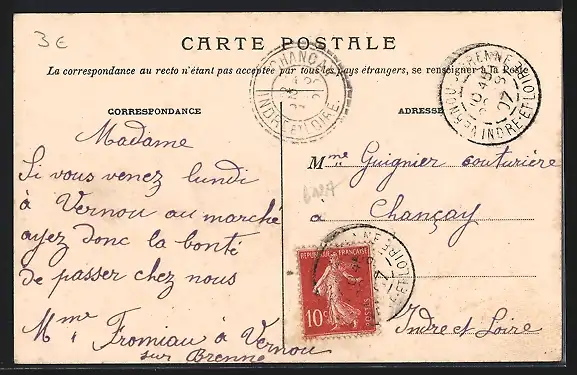 3€
CARTE POSTALE
La correspondance au recto n'étant pas acceptée par tous les pays étrangers, se renseigner à la Poste
CORRESPONDANCE
ADRESSE
CHANÇAY
INDRE ET LOIRE
VERNOU S. BRENNE
INDRE ET LOIRE
07
Madame
Si vous venez lundi
à Vernou au marché
ayez donc la bonté
de passer chez nous
Mme Fromiau à Vernou
sur Brenne
Mme Guignier couturière
à Chançay
Indre et Loire
REPUBLIQUE FRANÇAISE
10c
POSTES